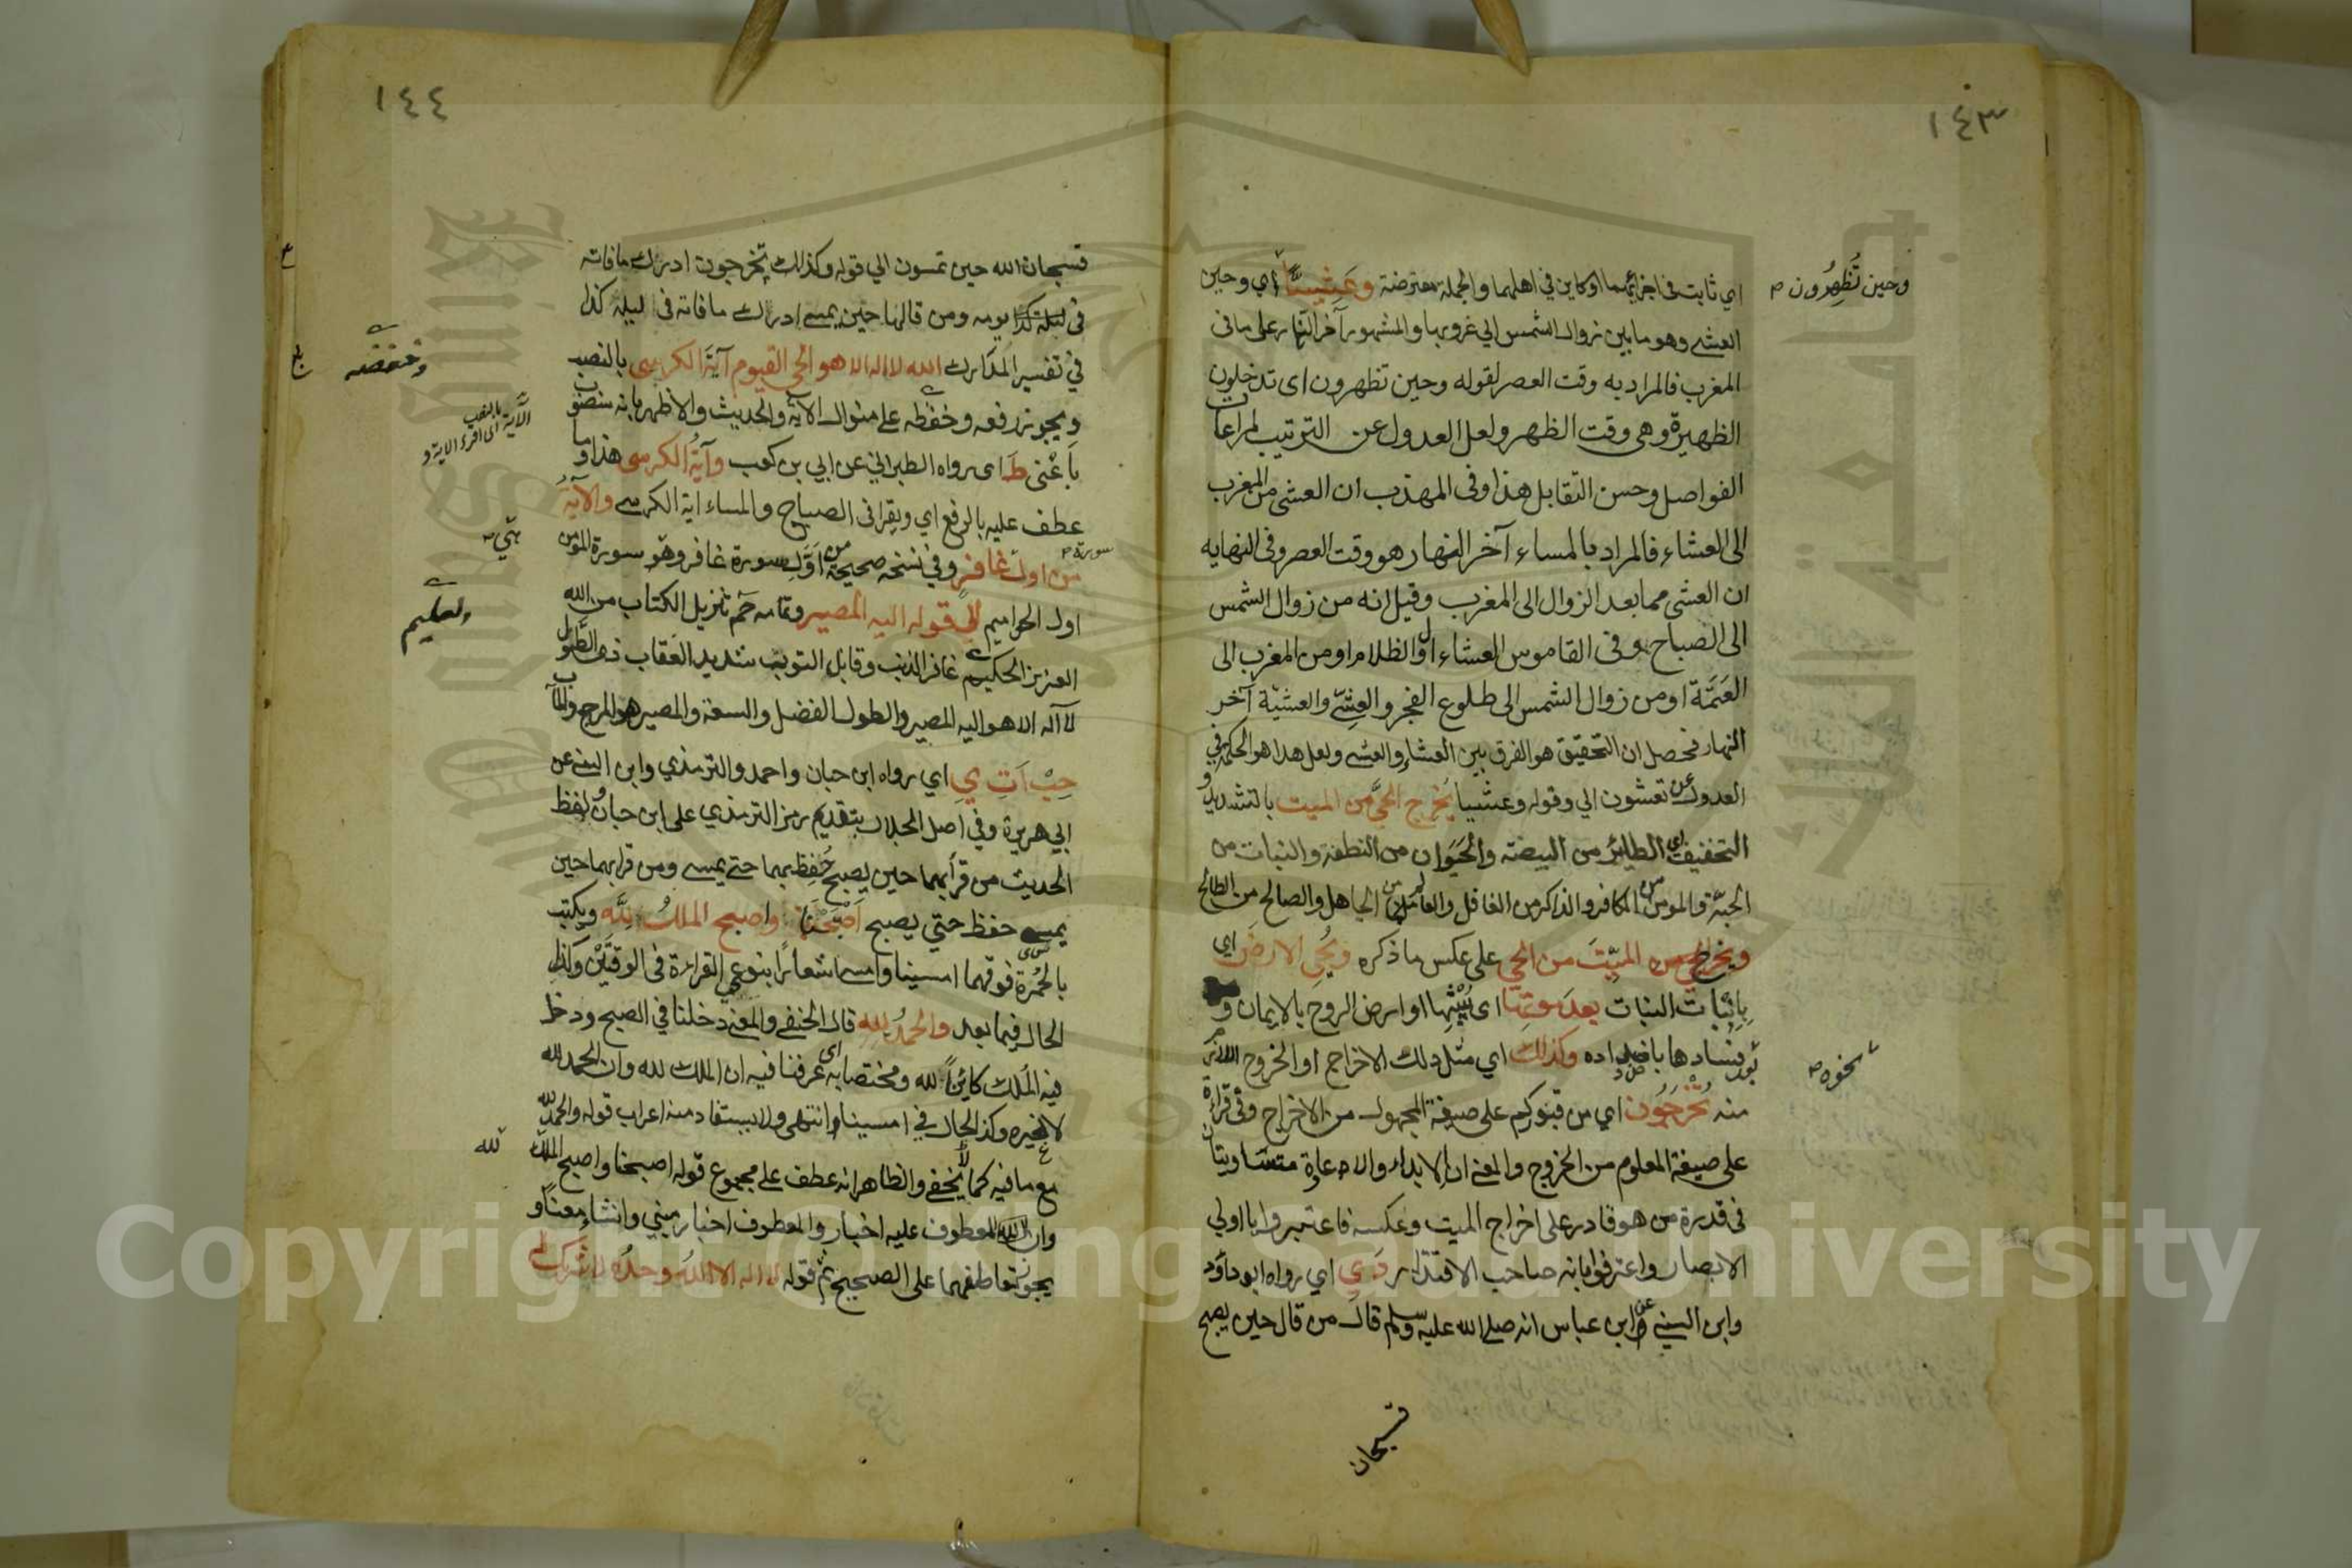 ١٤٣
اي ثابت في اجزائهما او كاين في اهلهما والجملة معترضة وعشيا اي وحين
وحين تُظهِرُون
العشي وهو ما بين زوال الشمس الي غروبها والمشهور آخر النهار على ما في
المغرب فالمراد به وقت العصر لقوله وحين تظهرون اى تدخلون
الظهيرة وهى وقت الظهر ولعل العدول عن الترتيب لمراعات
الفواصل وحسن التقابل هذا وفى المهذب ان العشى من المغرب
الى العشاء فالمراد بالمساء آخر النهار هو وقت العصر وفى النهايه
ان العشى مما بعد الزوال الى المغرب وقيل انه من زوال الشمس
الى الصباح وفى القاموس العشاء اول الظلام او من المغرب الى
العَتَمَة او من زوال الشمس الى طلوع الفجر والعشِيّ والعشيّة آخر
النهار فحصل ان التحقيق هو الفرق بين العشاء والعشي ولعل هذا هو الحكمة في
العدول عن تعشون الي وقوله وعشيا يُخرج الحيَّ من الميت بالتشديد و
التخفيف اى الطائر من البيضة والحَيَوان من النطفة والنبات من
الحبّة والمومن من الكافر والذاكر من الغافل والعالم من الجاهل والصالح من الطالح
ويخرج الميّتَ من الحي على عكس ما ذكره ويُحيي الارضَ اي
بِاِنْبات النبات بعدَ موتِها اى يُبْسِها او ارض الروح بالايمان و
سخوه
منه تُخْرَجُون اي من قبوركم على صيغة المجهول من الاخراج وفى قراءة
على صيغة المعلوم من الخروج والمعنى ان الابداء والاعادة متساويتان
فى قدرة من هو قادر على اخراج الميت وعكسه فاعتبروا يا اولي
الابصار واعترفوا بانه صاحب الاقتدار دَ ي اي رواه ابو داؤد
وابن السني عن ابن عباس انه صلى الله عليه وسلم قال من قال حين يصبح
فسبحان
١٤٤
فسبحان الله حين تمسون الي قوله وكذلك تخرجون ادرك ما فاته
فى يومه ومن قالها حين يمسي ادرك ما فاته فى ليلة كذا
في تفسير المدارك الله لا اله الا هو الحي القيوم آيَةَ الكرسى بالنصب
وخفضه
ويجوز رفعه وخفظه على منوال الآية والحديث والاظهر بانه منصوب
الآية بالنصب اى اقرء الاية و
بِاَعْنى طَ اى رواه الطبراني عن ابي بن كعب وآيةُ الكرسى هذا وما
عطف عليه بالرفع اي ويقرا فى الصباح والمساء اية الكرسي والآيةُ
من اول غافر وفي نسخة صحيحة من اَوَّلِ سورة غافر وهو سورة المؤمن
اول الحواميم الى قوله اليه المصير وتمامه حٓم تنزيل الكتاب من الله
العليم
العزيز الحكيم غافر الذنب وقابل التوب شديد العقاب ذى الطَّول
لا اله الا هو اليه المصير والطول الفضل والسعة والمصير هو المرجع والمآب
حِبْ اَ تِ ي اي رواه ابن حبان واحمد والترمذي وابن السني عن
ابي هريرة وفي اصل الجلال بتقديم رمز الترمذي على ابن حبان ولفظ
الحديث من قرأبهما حين يصبح حُفِظ بهما حتي يمسي ومن قرا بهما حين
يمسي حفظ حتي يصبح اَصْبَحْنَا واصبح الملكُ لِلّٰهِ ويكتب
بالحُمْرة فوقهما امسينا وامسى اشعارًا بنوعي القراءة فى الوقتَيْن وكذا
الحال فيما بعد والحمدُ للهِ قال الحنفي والمعني دخلنا في الصبح ودخل
فيه المُلك كائِنًا لله ومختصا به اى عرفنا فيه ان الملك لله وان الحمد لله
لا لغيره وكذ الحال في امسينا وانتهى ولا يستفاد منه اعراب قوله والحمد لله
مع ما فيه كما لا يخفى والظاهر انه عطف على مجموع قوله اصبحنا واصبح الملك
لله
وان المعطوف عليه اخبار والمعطوف اخبار مبني وانشاء معنًا و
يجوز تعاطفهما على الصحيح ثم قوله لا اله الا اللهُ وحدُه لا شريك له